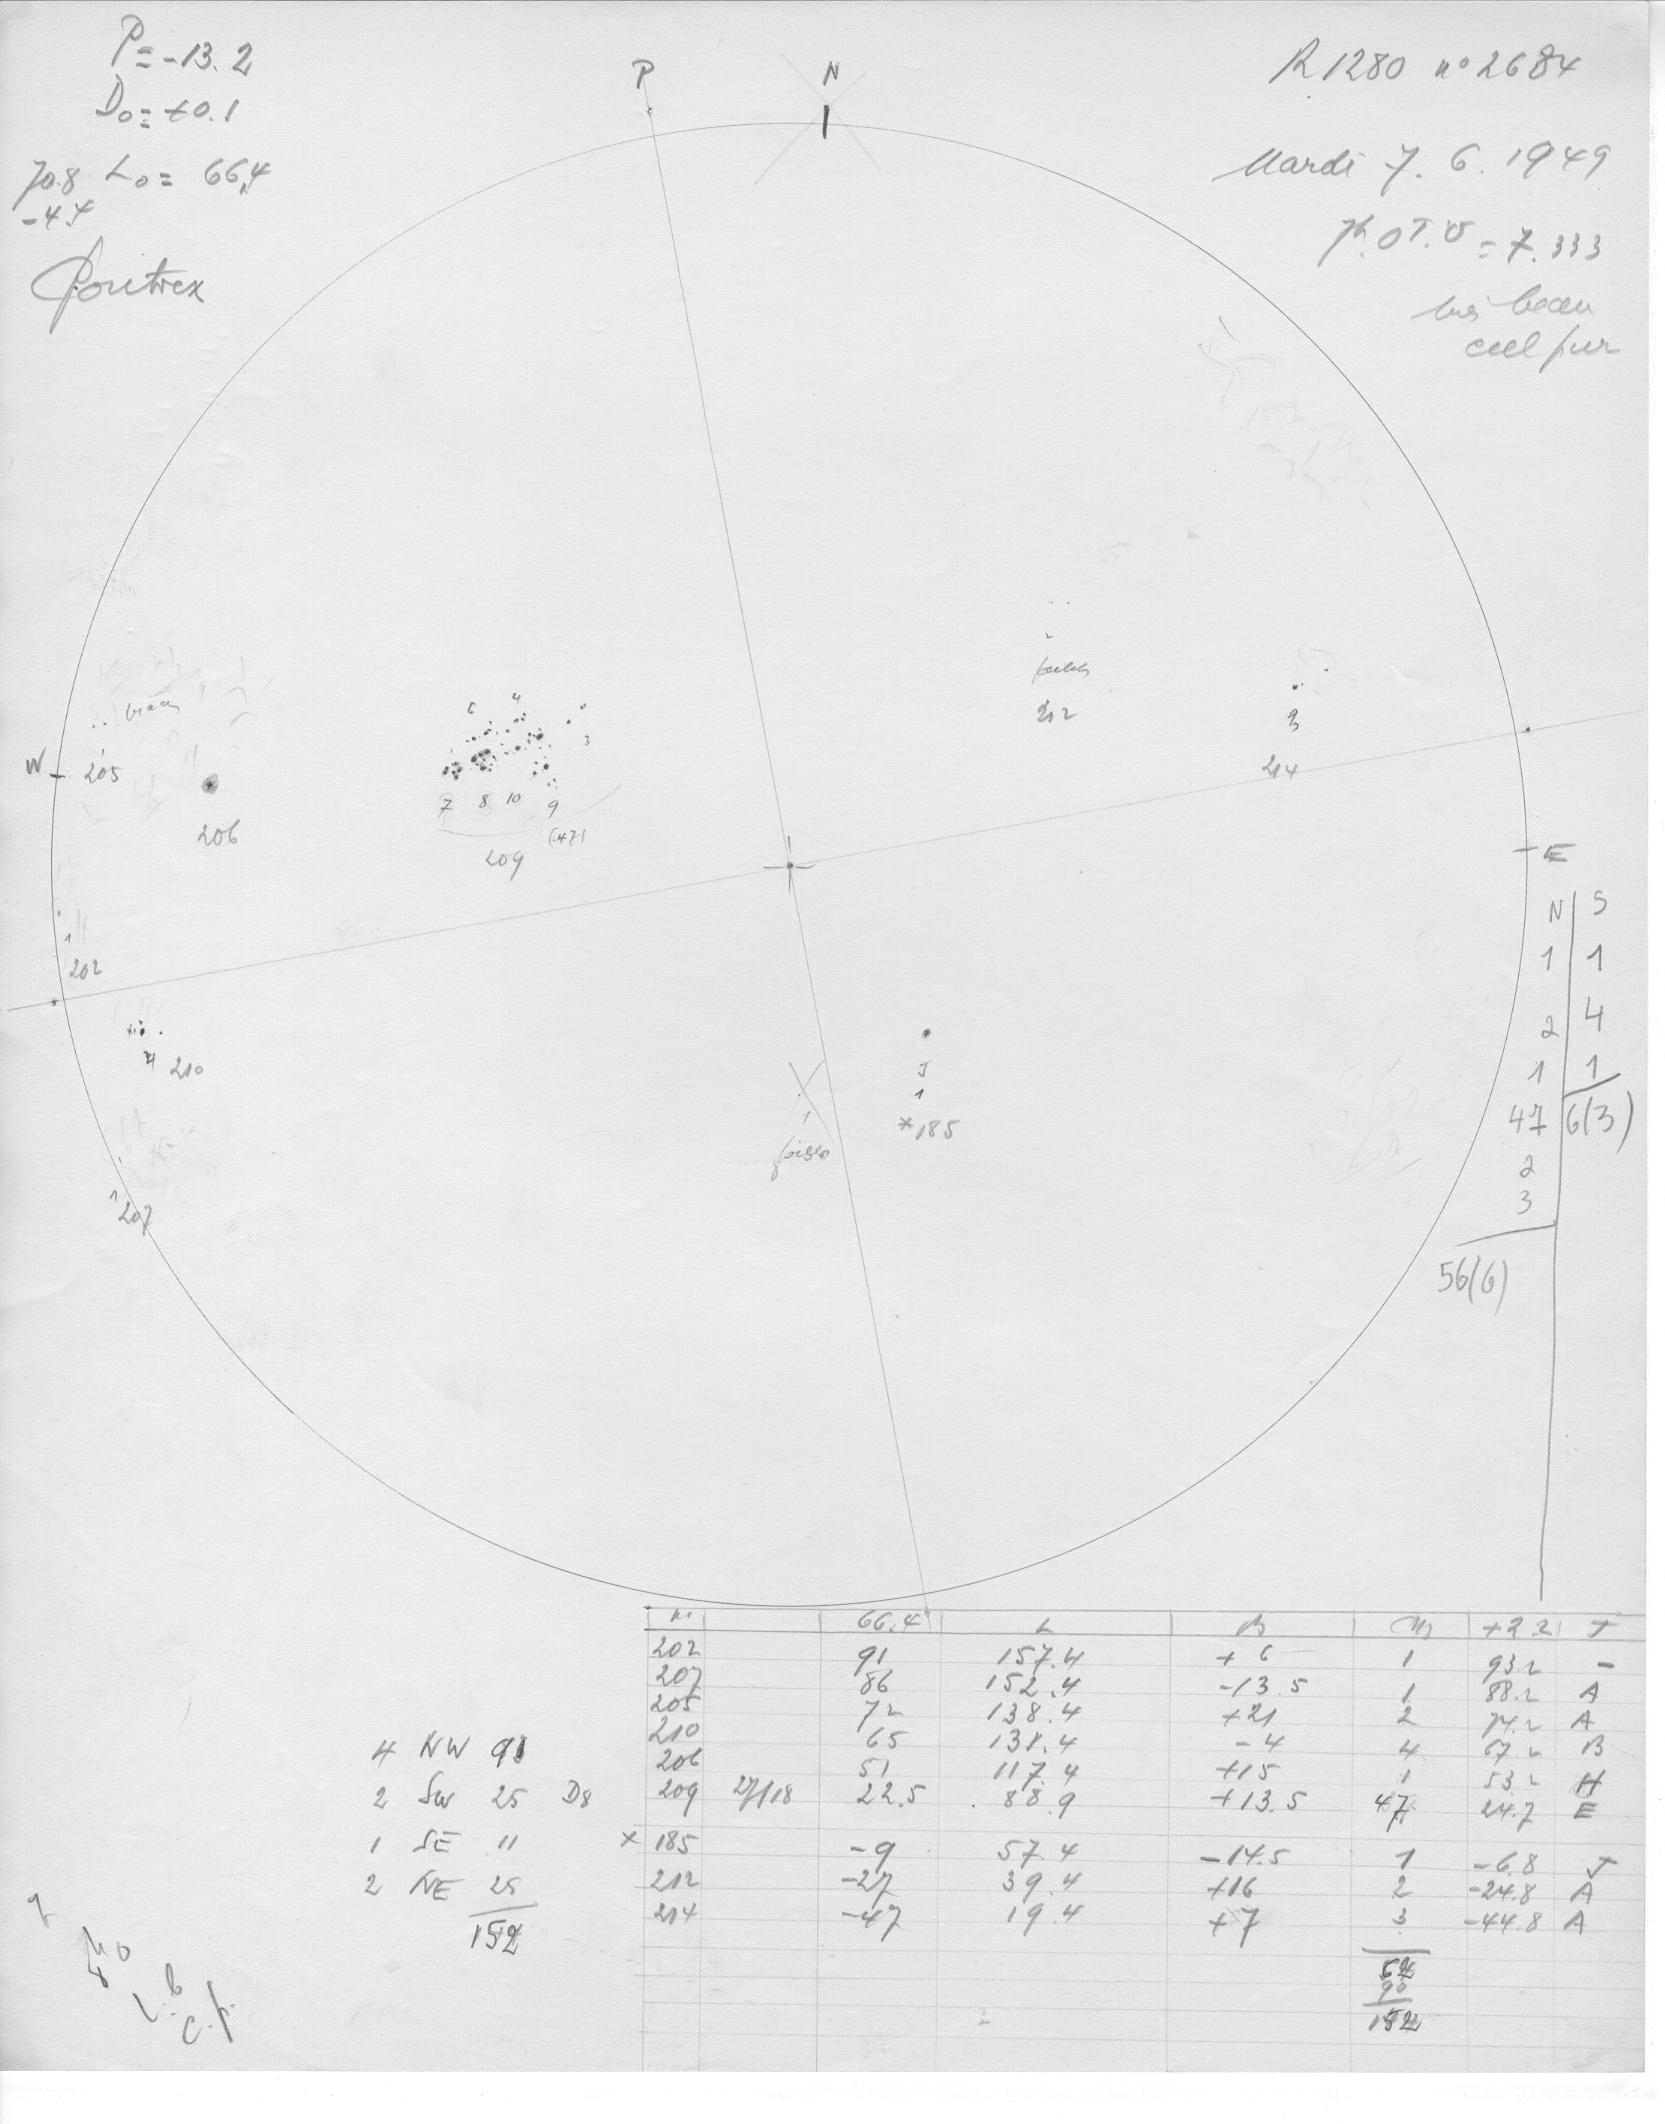 P = -13.2
D₀ = +0.1
70.8 L₀ = 66,4
-4.4
P
N
R 1280 n° 2684
Mardi 7. 6. 1949
7h. 0 T.U = 7.333
très beau
ciel pur
W
205
206
6
4
3
7 8 10 9
(47)
209
212
3
214
E
1
202
4 210
1
207
J
1
*185
1
N | S
1 | 1
2 | 4
1 | 1
47 | 6(3)
2
3
56(6)
66.4 L B +2.2 T
202 91 157.4 +6 1 93.2 -
207 86 152.4 -13.5 1 88.2 A
205 72 138.4 +21 2 74.2 A
210 65 131.4 -4 4 67.2 B
206 51 117.4 +15 1 53.2 H
209 27/18 22.5 88.9 +13.5 47 24.7 E
x 185 -9 57.4 -14.5 1 -6.8 J
212 -27 39.4 +16 2 -24.8 A
214 -47 19.4 +7 3 -44.8 A
90
152
4 NW 91
2 SW 25 D8
1 SE 11
2 NE 25
152